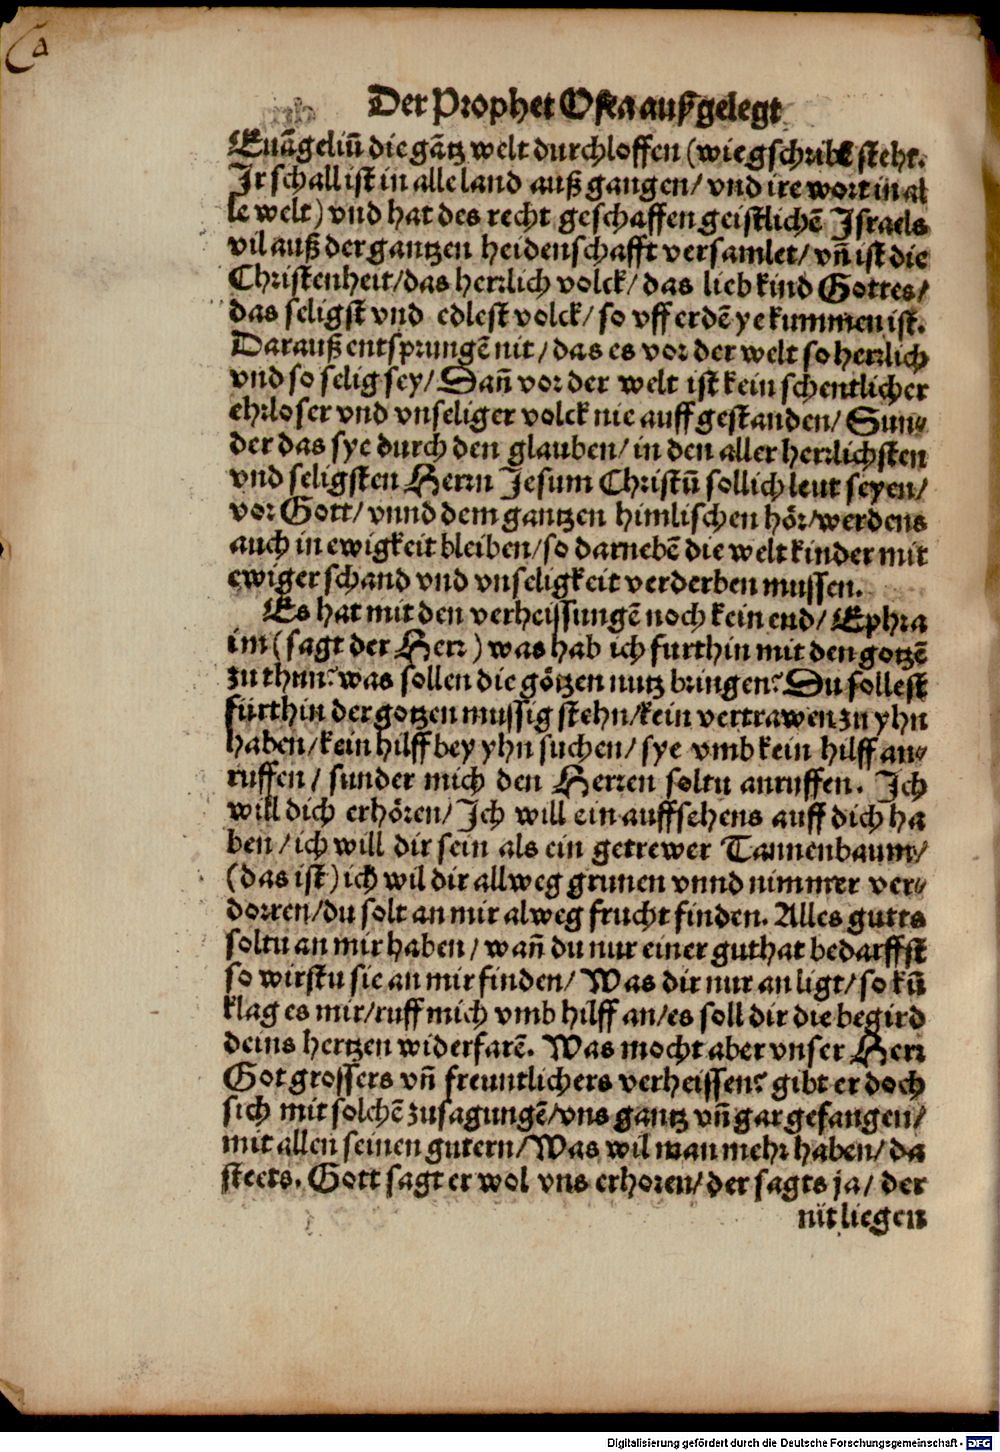 Der Prophet Osea außgelegt
Euãgeliũ die gãtz welt durchloffen (wie gschribẽ steht.
Ir schall ist in alle land auß gangen/ vnd ire wort in al
le welt) vnd hat des recht geschaffen geistlichẽ Israels
vil auß der gantzen heidenschafft versamlet/ vñ ist die
Christenheit/das herrlich volck/ das lieb kind Gottes/
das seligst vnd edlest volck/ so vff erdẽ ye kummen ist.
Darauß entsprungẽ nit/ das es vor der welt so herrlich
vnd so selig sey/ Dañ vor der welt ist kein schentlicher
ehrloser vnd vnseliger volck nie auff gestanden/ Sun⸗
der das sye durch den glauben/ in den aller herrlichsten
vnd seligsten Herrn Jesum Christũ sollich leut seyen/
vor Gott/ vnnd dem gantzen himlischen hör/werdens
auch in ewigkeit bleiben/so darnebẽ die welt kinder mit
ewiger schand vnd vnseligkeit verderben mussen.
Es hat mit den verheissungẽ noch kein end/ Ephra
im (sagt der Herr) was hab ich furthin mit den gotzẽ
zu thun? was sollen die götzen nutz bringen? Du sollest
fürthin der gotzen mussig stehn/kein vertrawen zu yhn
haben/kein hilff bey yhn suchen/ sye vmb kein hilff an⸗
ruffen/ sunder mich den Herren soltu anruffen. Ich
will dich erhören/ Ich will ein auffsehens auff dich ha
ben/ich will dir sein als ein getrewer Tannenbaum/
(das ist) ich wil dir allweg grunen vnnd nimmer ver⸗
dorren/du solt an mir alweg frucht finden. Alles gutts
soltu an mir haben/ wañ du nur einer guthat bedarffst
so wirstu sie an mir finden/ Was dir nur an ligt/ so kũ
klag es mir/ruff mich vmb hilff an/es soll dir die begird
deins hertzen widerfarẽ. Was mocht aber vnser Herr
Got grossers vñ freuntlichers verheissen? gibt er doch
sich mit solchẽ zusagungẽ/vns gantz vñ gar gefangen/
mit allen seinen gutern/Was wil man mehr haben/ da
steets. Gott sagt er wol vns erhoren/ der sagts ja/ der
nit liegen
Digitalisierung gefördert durch die Deutsche Forschungsgemeinschaft - DFG